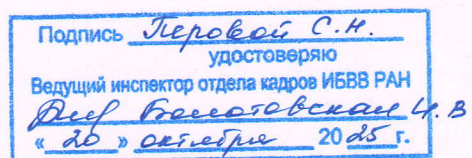 Подпись Перовой С.Н.
удостоверяю
Ведущий инспектор отдела кадров ИБВВ РАН
Болотовская И.В
« 20 » октября 20 25 г.